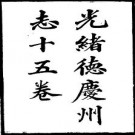 光緒德慶州
志十五卷